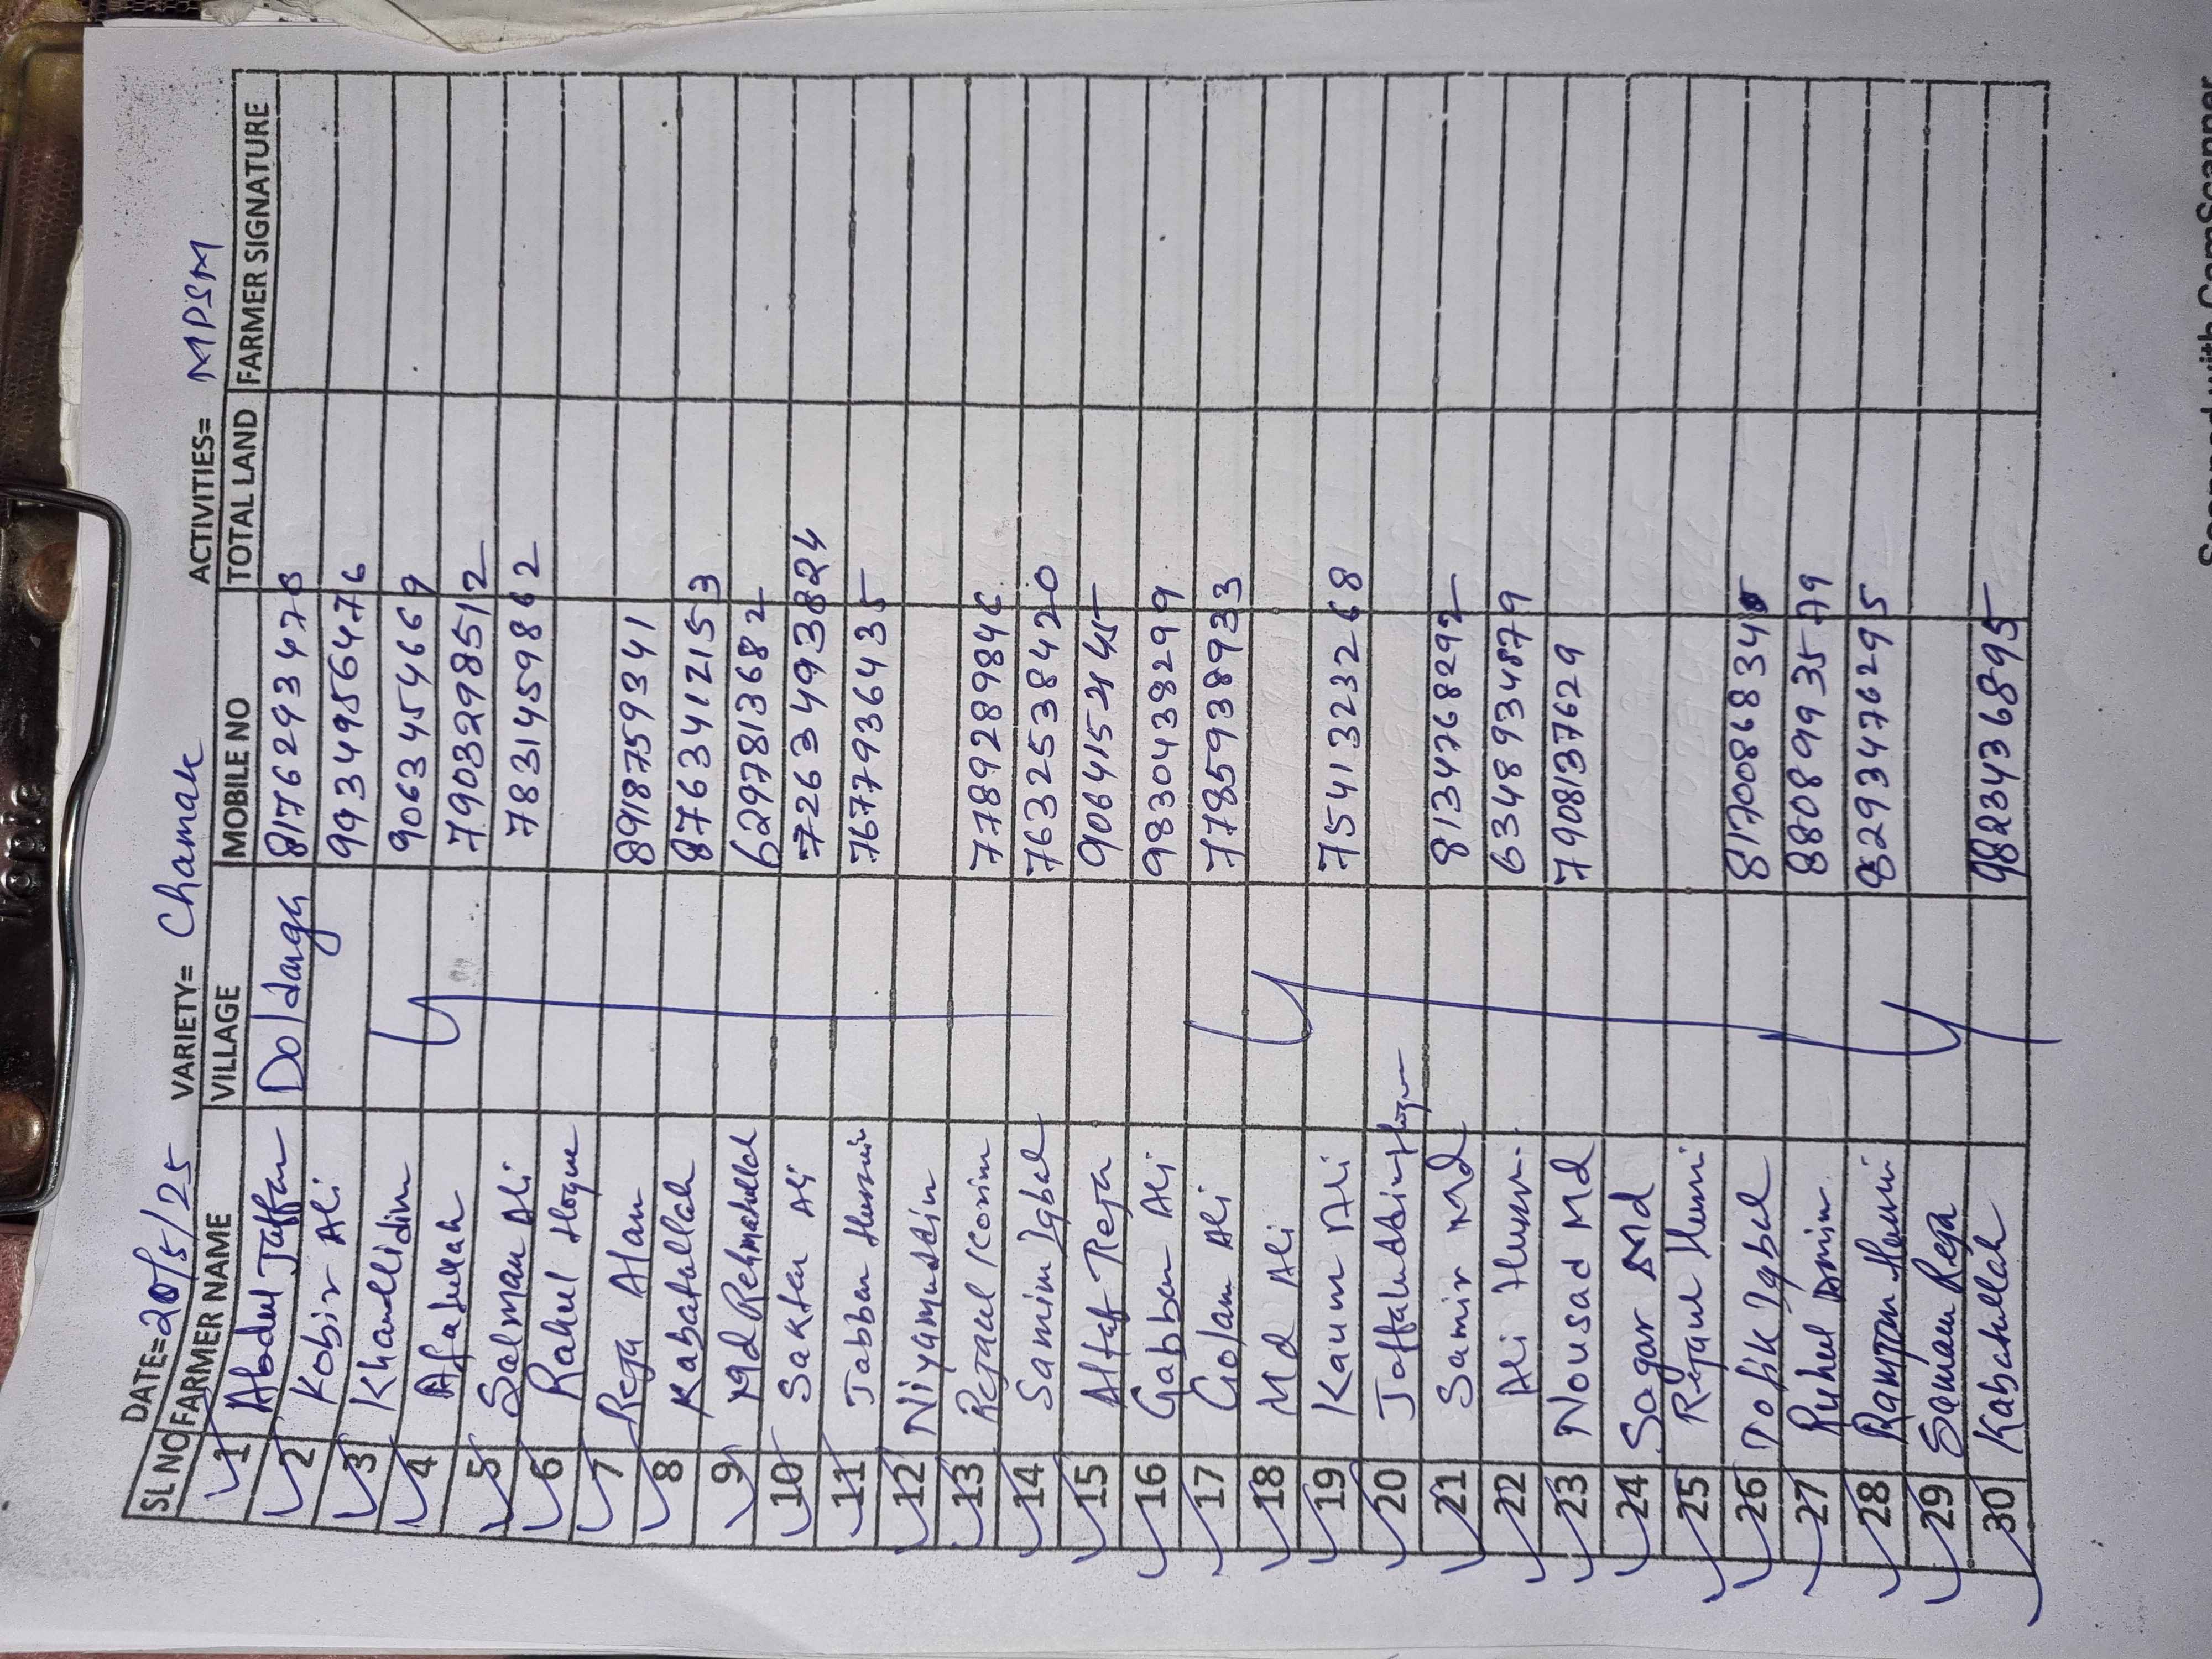 DATE=20/5/25 VARIETY= Chamak ACTIVITIES= MPSM
SL NO FARMER NAME VILLAGE MOBILE NO TOTAL LAND FARMER SIGNATURE
1 Abdul Jaffar Doldangg 8176293470
2 Kobir Ali 9934956476
3 Khamlidin 9063454669
4 Afatullah 7908329851 2
5 Salman Ali 7831459862
6 Rahul Hoque
7 Reja Alam 8918759341
8 Kabatullah 8763412153
9 Md Rehmatullah 6297813682
10 Saktar Ali 7263493824
11 Jabbar Hussain 7677936435
12 Niyamuddin
13 Rejaul Korim 7789289846
14 Samim Iqbal 7632538420
15 Altaf Reja 9064152445
16 Gabbar Ali 9830438299
17 Golam Ali 7785938933
18 Md Ali
19 Kaium Ali 7541323268
20 Joffaluddin Hoque
21 Samir Md 8134768292
22 Ali Hussn. 6348934879
23 Nousad Md 7908137629
24 Sagar Md
25 Rejaul Hussni
26 Tofik Iqbal 817008683
27 Ruhul Amin 8808993579
28 Ramjan Hussni 8293476295
29 Samam Reja
30 Kabatullah 9823436895